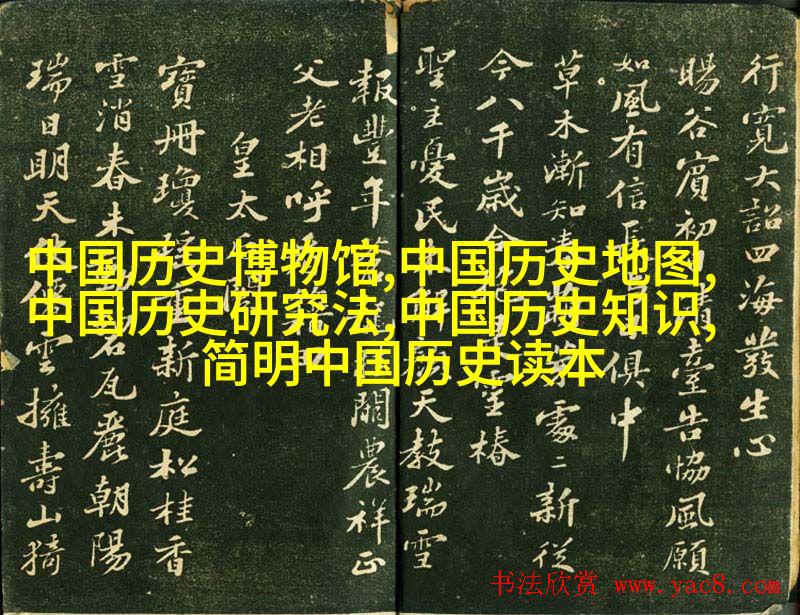 行寬大詔四海發生心
暘谷賓初清臺告協風願
如風有信長日俱中
草木漸知春處〻新從
今八千歲合是靈椿
聖主憂民天教瑞雪
報豐年蒼闕農祥正
父老相呼
皇太后閤
寶册瓊重新庭松桂香
雪消春未動碧瓦麗朝陽
瑞日明天仗僊雲擁壽山猗
中国历史博物馆,中国历史地图,
中国历史研究法,中国历史知识,
简明中国历史读本
书法欣赏 www.yac8.com